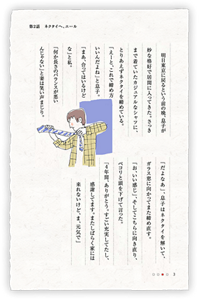 第2話 ネクタイへ、エール
明日東京に戻るという前の晩、息子が
妙な格好で居間に入ってきた。さっき
まで着ていたカジュアルなシャツに、
とりあえずネクタイを締めている。
「えーと、これで締め方
いいんだよね」と息子。
「まあ、合ってはいるけど
な」と私。
「何か長さのバランスが悪い
んじゃない」と妻は笑いが止まらない。
「だよなあ」。息子はネクタイを解いて、
ガラス窓に向かってまた締め直す。
「お、いい感じ」。そしてこちらに向き直り、
ペコリと頭を下げて言った。
「4年間、ありがとう。すごい充実してたし、
感謝してます。またしばらく家には
来れないけど、ま、元気で」